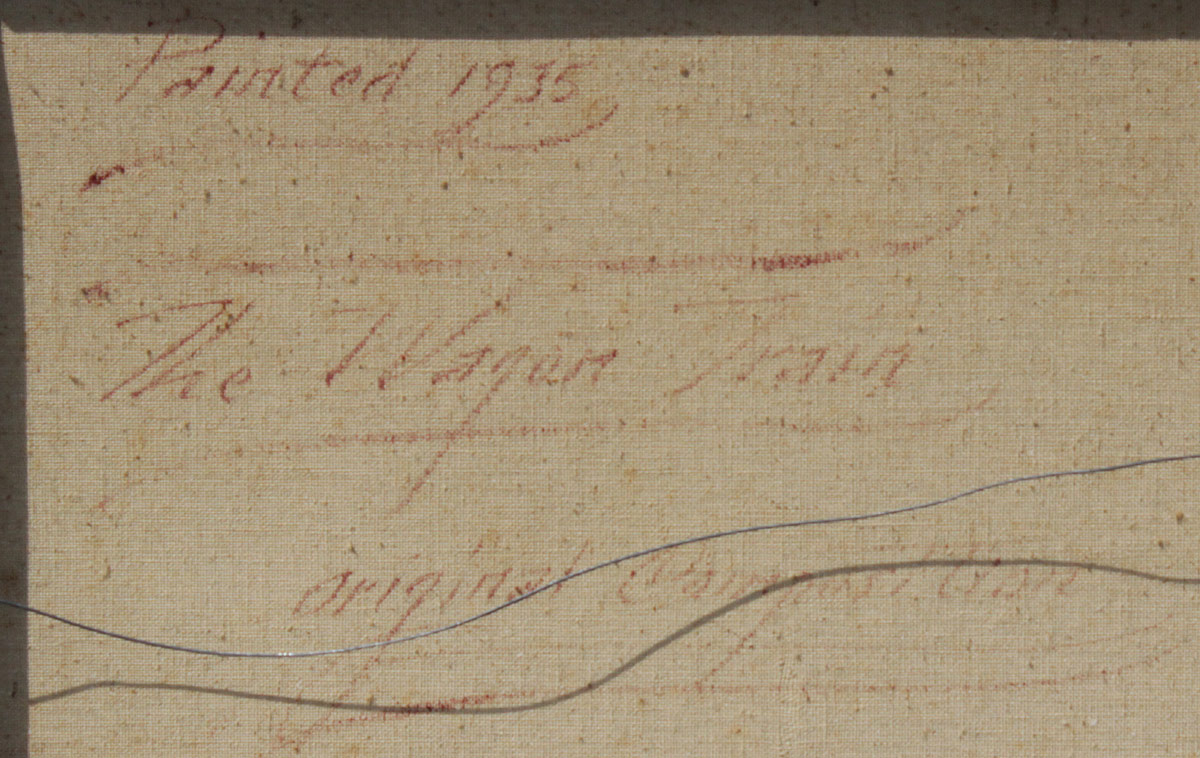 Painted 1935
The Wagon Train
original Composition